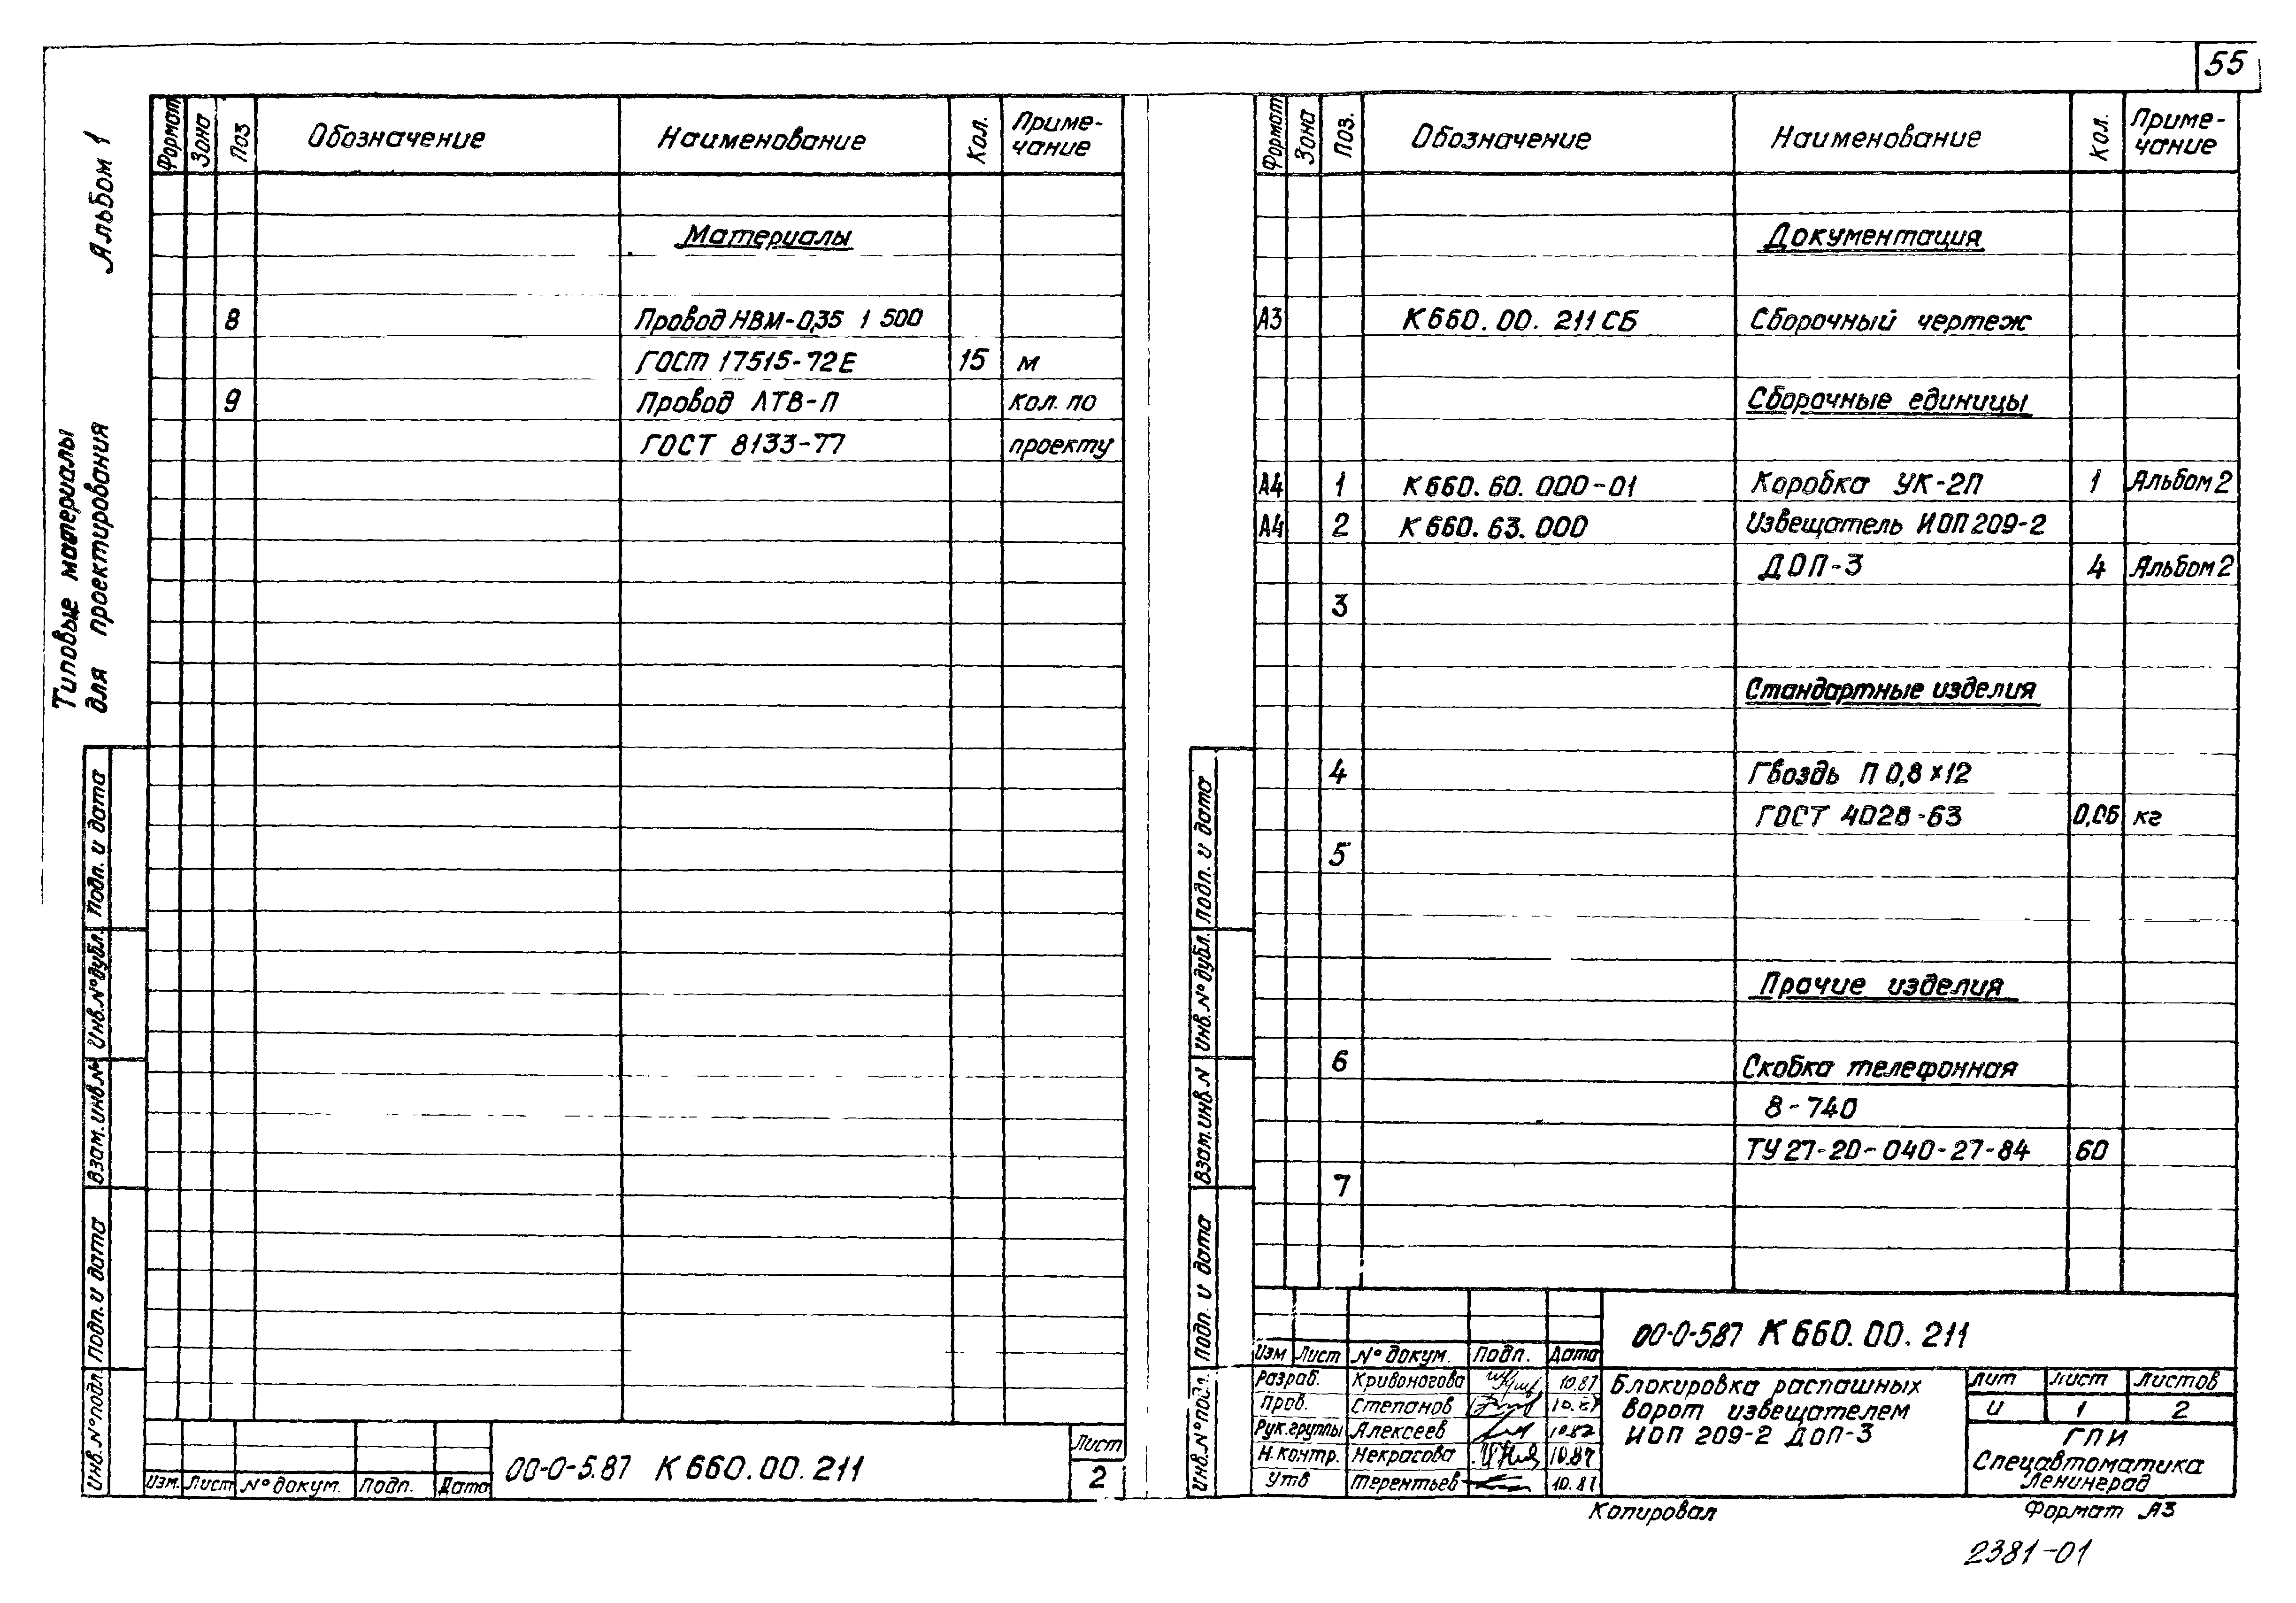 55
Альбом 1
Типовые материалы
для проектирования
Формат Зона Поз Обозначение Наименование Кол. Приме-
чание
Материалы
8 Провод НВМ-0,35 1 500
ГОСТ 17515-72Е 15 м
9 Провод ЛТВ-П кол. по
ГОСТ 8133-77 проекту
Инв.№ подл. Подп. и дата Взам.инв.№ Инв.№ дубл. Подп. и дата
Изм. Лист № докум. Подп. Дата
00-0-5.87 К660.00.211
Лист
2
Формат Зона Поз. Обозначение Наименование Кол. Приме-
чание
Документация
А3 К660.00.211СБ Сборочный чертеж
Сборочные единицы
А4 1 К660.60.000-01 Коробка УК-2П 1 Альбом 2
А4 2 К660.63.000 Извещатель ИОП209-2
ДОП-3 4 Альбом 2
3
Стандартные изделия
4 Гвоздь П 0,8×12
ГОСТ 4028-63 0,06 кг
5
Прочие изделия
6 Скобка телефонная
8-740
ТУ27-20-040-27-84 60
7
Инв.№ подл. Подп. и дата Взам.инв.№ Инв.№ дубл. Подп. и дата
00-0-5.87 К660.00.211
Изм Лист № докум. Подп. Дата
Разраб. Кривоногова 10.87
Пров. Степанов 10.87
Рук.группы Алексеев 10.87
Н.контр. Некрасова 10.87
Утв Терентьев 10.87
Блокировка распашных
ворот извещателем
ИОП 209-2 ДОП-3
Лит Лист Листов
И 1 2
ГПИ
Спецавтоматика
Ленинград
Копировал Формат А3
2381-01